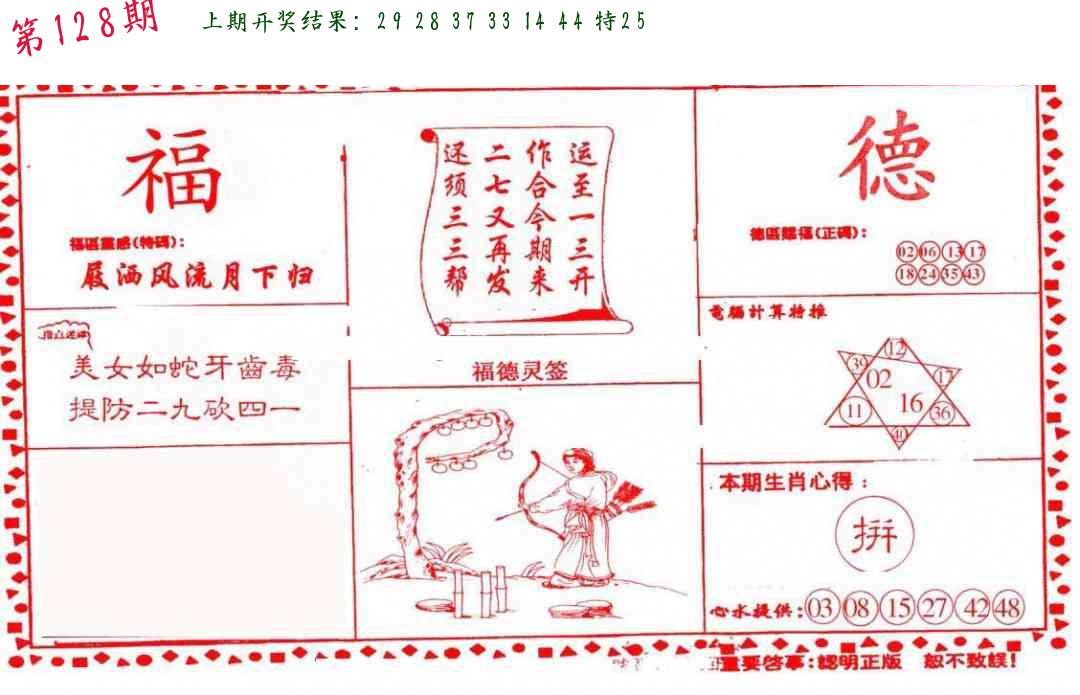 第128期
上期开奖结果：29 28 37 33 14 44 特25
福
福區靈感(特碼)：
屐洒风流月下归
美女如蛇牙齒毒
提防二九砍四一
运至一三开
作合今期来
二七又再发
还须三三帮
福德灵签
德
德區賜福(正碼)：
02 06 13 17
18 24 35 43
電腦計算特推
12
39 02 17
11 16 36
40
本期生肖心得：
拼
心水提供：03 08 15 27 42 48
重要啓事：認明正版 恕不致誤！